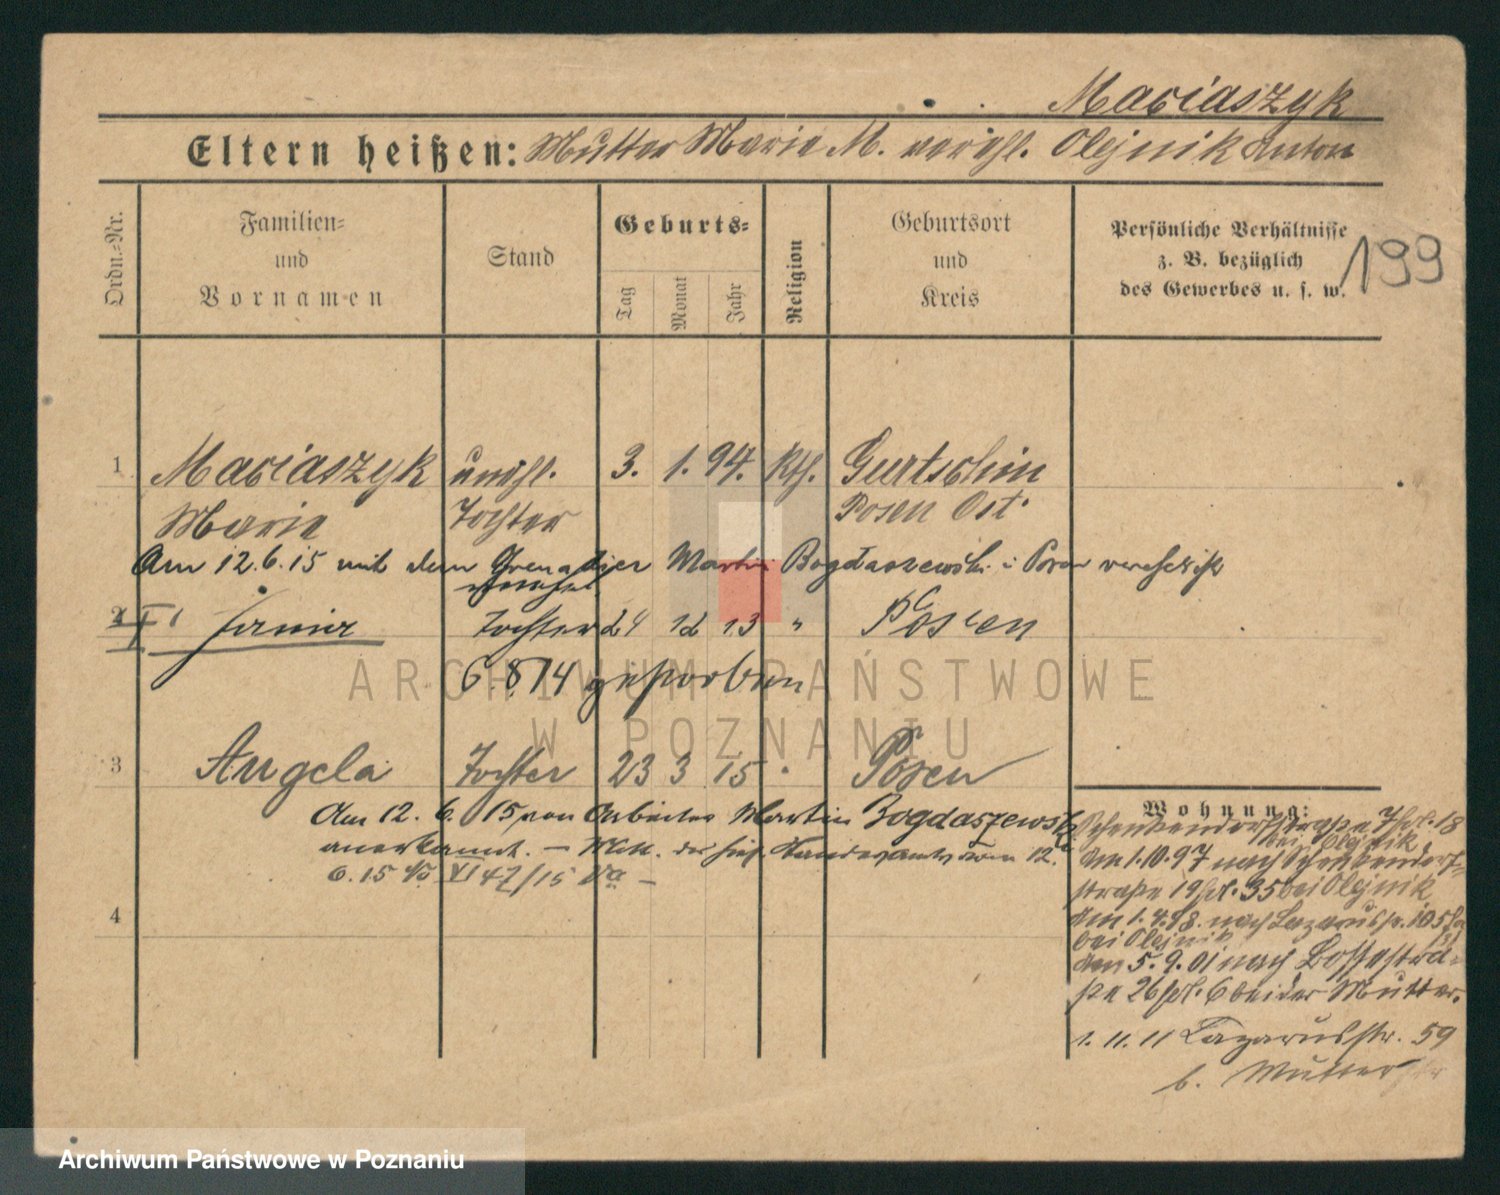 Maciaszyk
Eltern heißen: Mutter Marie M. verehl. Olejnik Anton
Ordn.-Nr.
Familien-
und
Vornamen
Stand
Geburts-
Tag
Monat
Jahr
Religion
Geburtsort
und
Kreis
Persönliche Verhältnisse
z. B. bezüglich
des Gewerbes u. s. w.
199
1 Maciaszyk unehl. 3. 1. 94. Kth. Gurtschin
Marie Tochter Posen Ost
Am 12.6.15 mit dem Grenadier Martin Bogdaszewski i. Posen verehelicht
2 Tochter 24 12 13 " Posen
6.8.14 gestorben
3 Angela Tochter 23 3 15 " Posen
Am 12. 6. 15 von Arbeiter Martin Bogdaszewski
anerkannt. — Mitt. des hies. Standesamts vom 12.
6.15 No VI 47/15 —
4
Wohnung:
Schenkendorfstraße 7 18
bei Olejnik
Am 1.10.97 nach Schenkendorf-
straße 19 35 bei Olejnik
Am 1.4.98. nach Lazarusstr. 10
bei Olejnik
Am 5.9.01 nach
ße 26 6 bei der Mutter.
1.11.11 Lazarusstr. 59
b. Mutter
ARCHIWUM PAŃSTWOWE
W POZNANIU
Archiwum Państwowe w Poznaniu